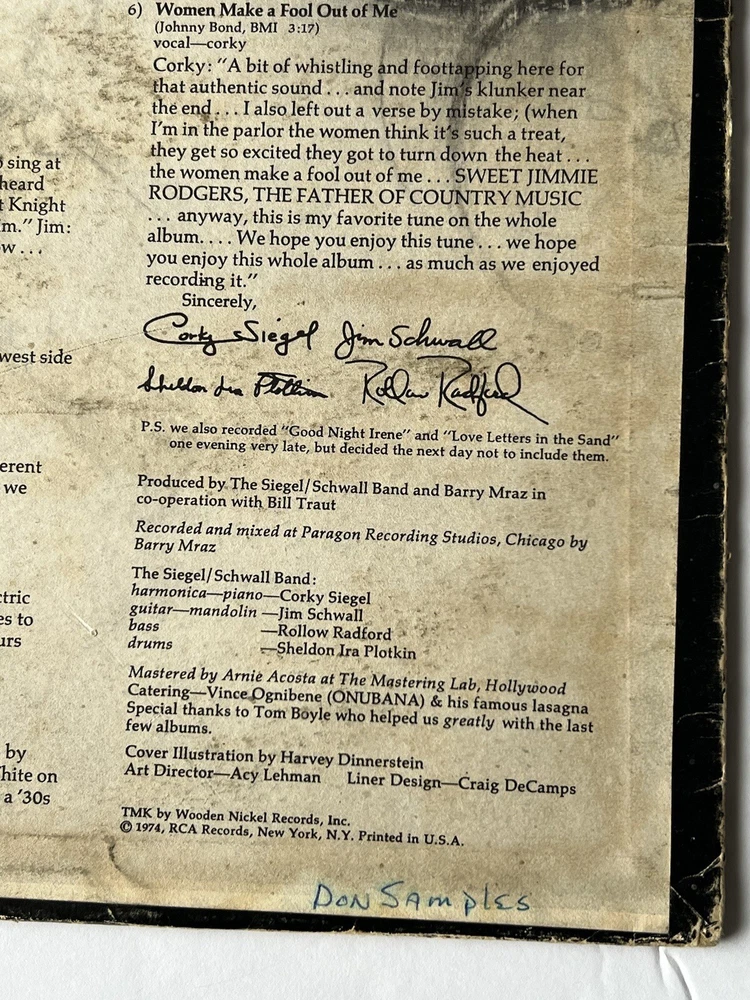 6) Women Make a Fool Out of Me
(Johnny Bond, BMI 3:17)
vocal—corky
Corky: "A bit of whistling and foottapping here for
that authentic sound . . . and note Jim's klunker near
the end . . . I also left out a verse by mistake; (when
I'm in the parlor the women think it's such a treat,
they get so excited they got to turn down the heat . . .
the women make a fool out of me . . . SWEET JIMMIE
RODGERS, THE FATHER OF COUNTRY MUSIC
. . . anyway, this is my favorite tune on the whole
album. . . . We hope you enjoy this tune . . . we hope
you enjoy this whole album . . . as much as we enjoyed
recording it."
Sincerely,
Corky Siegel Jim Schwall
Sheldon Ira Plotkin Rollow Radford
P.S. we also recorded "Good Night Irene" and "Love Letters in the Sand"
one evening very late, but decided the next day not to include them.
Produced by The Siegel/Schwall Band and Barry Mraz in
co-operation with Bill Traut
Recorded and mixed at Paragon Recording Studios, Chicago by
Barry Mraz
The Siegel/Schwall Band:
harmonica—piano—Corky Siegel
guitar—mandolin —Jim Schwall
bass —Rollow Radford
drums —Sheldon Ira Plotkin
Mastered by Arnie Acosta at The Mastering Lab, Hollywood
Catering—Vince Ognibene (ONUBANA) & his famous lasagna
Special thanks to Tom Boyle who helped us greatly with the last
few albums.
Cover Illustration by Harvey Dinnerstein
Art Director—Acy Lehman Liner Design—Craig DeCamps
TMK by Wooden Nickel Records, Inc.
© 1974, RCA Records, New York, N.Y. Printed in U.S.A.
DON SAMPLES
sing at
heard
Knight
m." Jim:
w . . .
west side
erent
we
ctric
es to
urs
by
hite on
a '30s